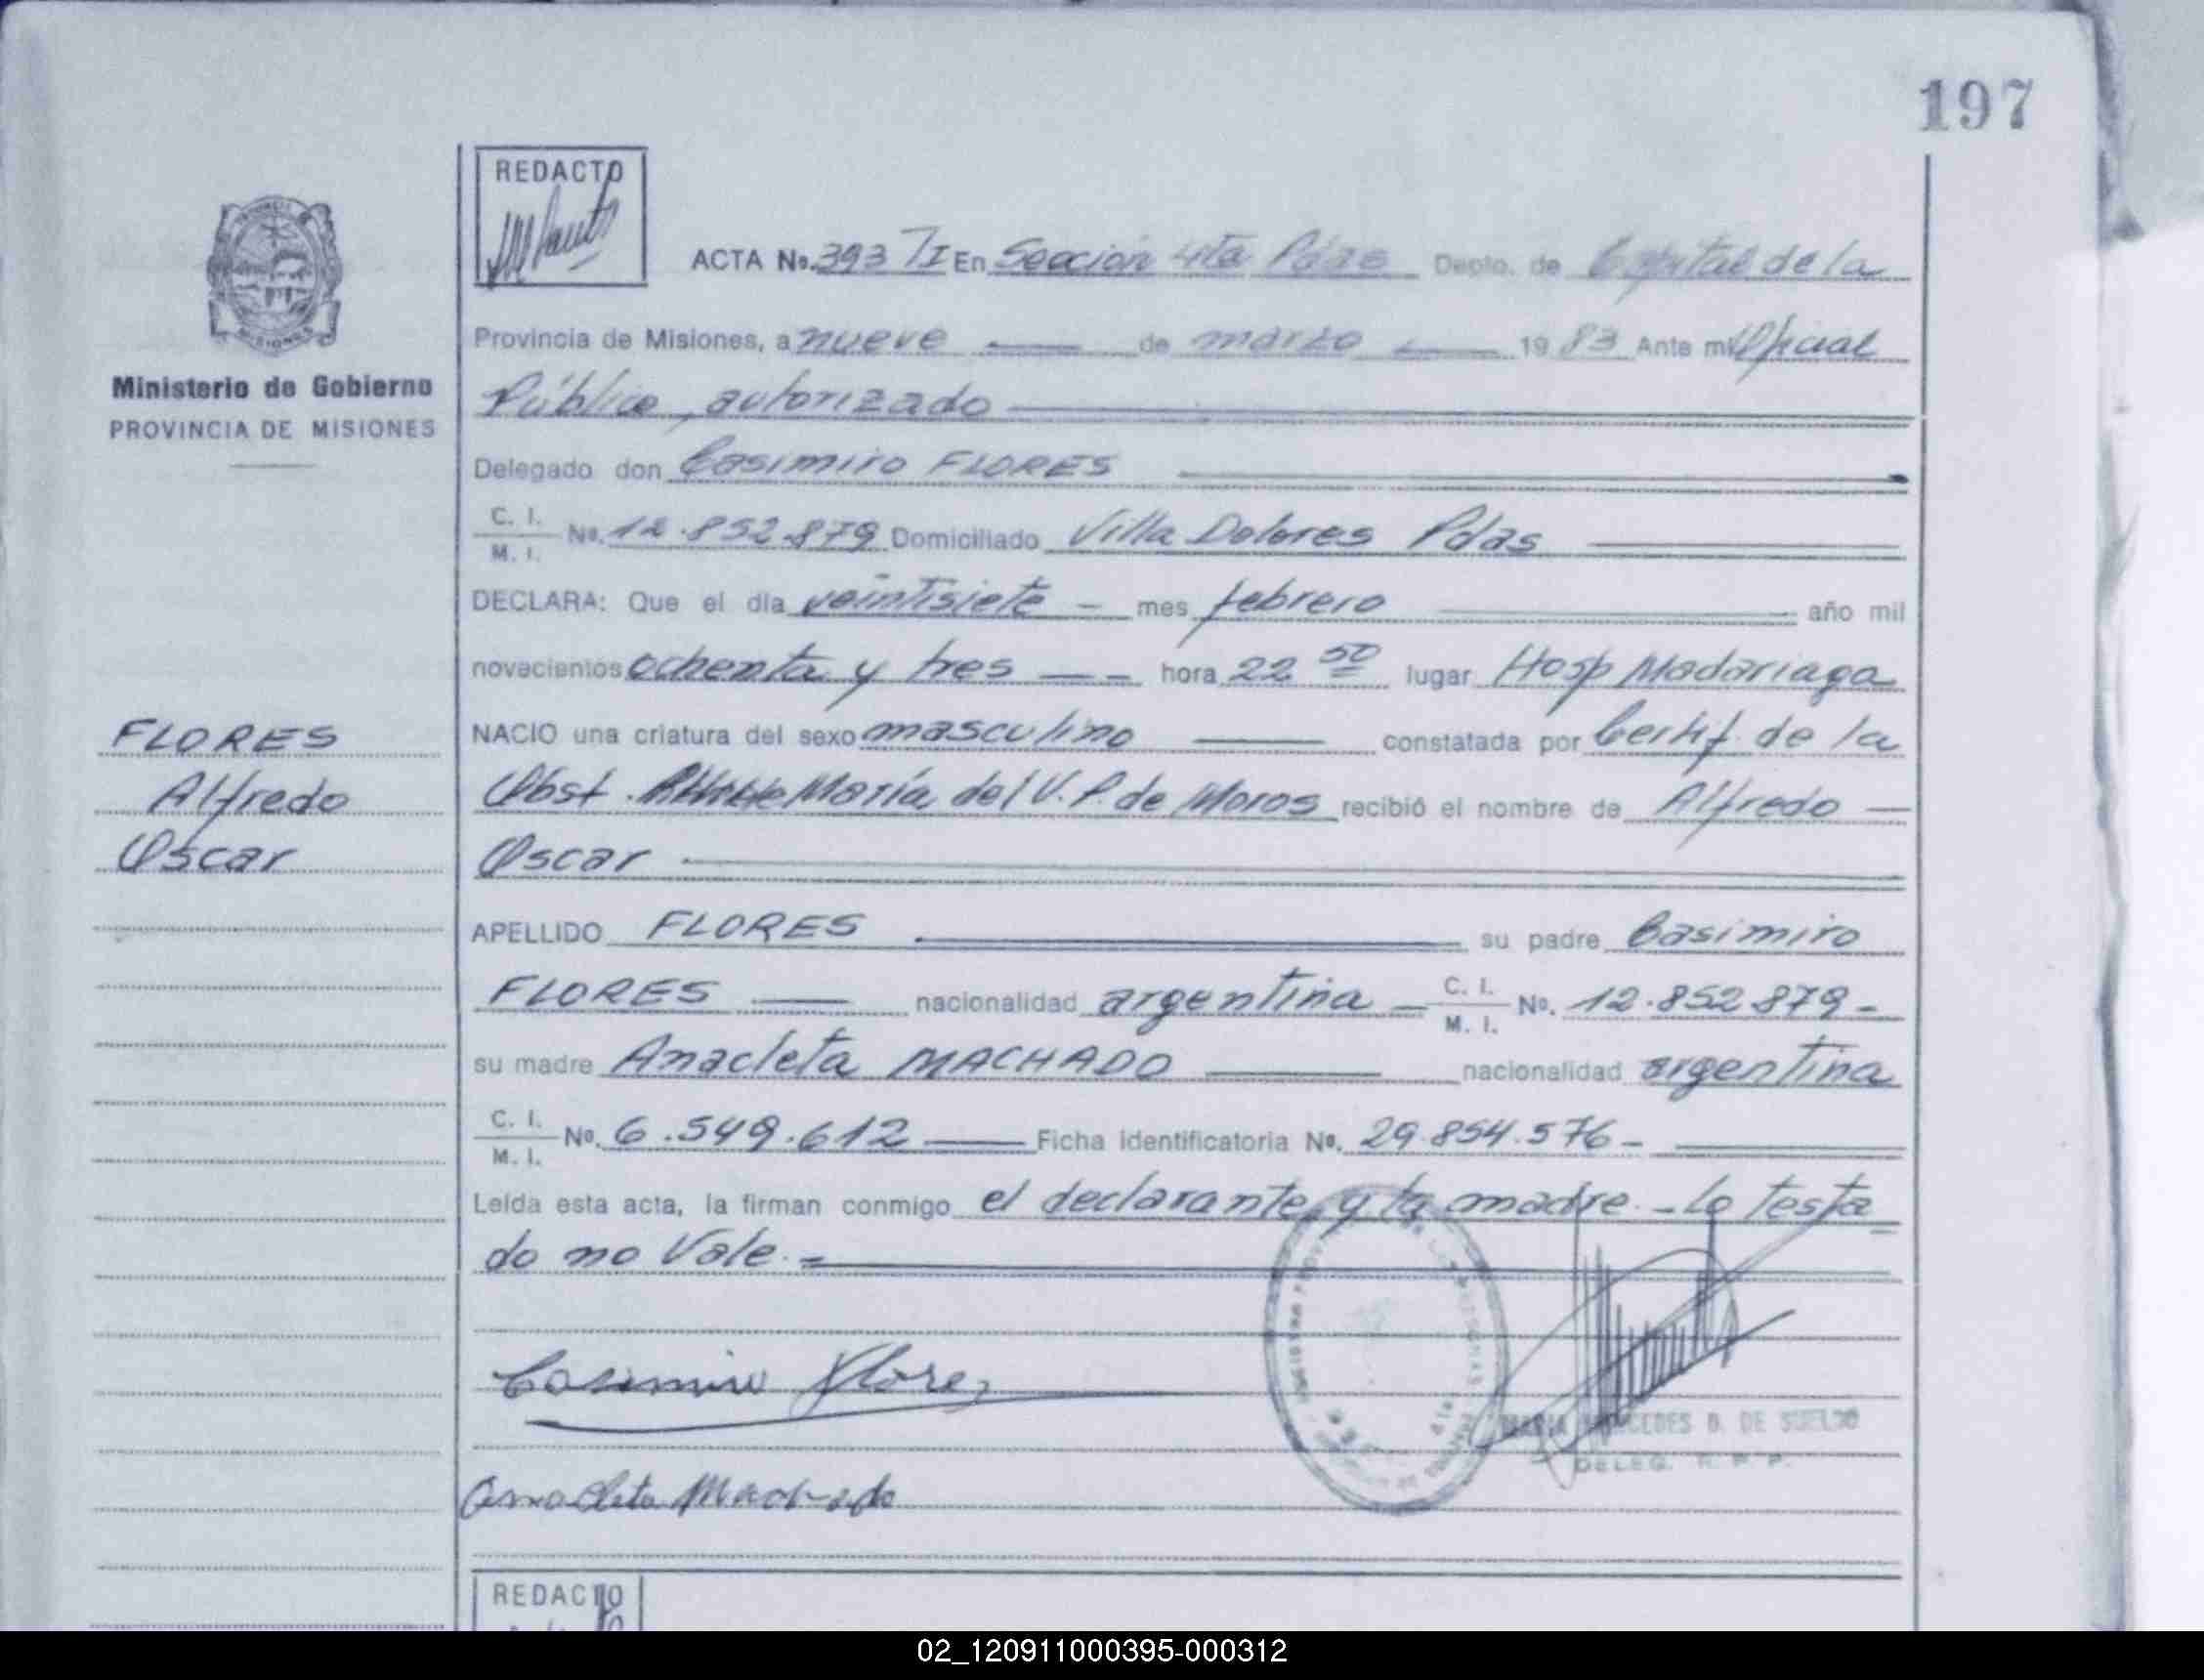 197
REDACTO
ACTA No. 393 T I En Sección 4ta Pdas Depto. de Capital de la
Ministerio de Gobierno
PROVINCIA DE MISIONES
Provincia de Misiones, a nueve de marzo 1983 Ante mi Oficial
Público, autorizado
Delegado don Casimiro FLORES
C. I. M. I. No. 12.852.879 Domiciliado Villa Dolores Pdas
DECLARA: Que el día veintisiete - mes febrero año mil
novecientos ochenta y tres -- hora 22 50 lugar Hosp Madariaga
FLORES
Alfredo
Oscar
NACIO una criatura del sexo masculino constatada por Certif. de la
Obst. María del V. P. de Moros recibió el nombre de Alfredo
Oscar
APELLIDO FLORES su padre Casimiro
FLORES nacionalidad argentina - C. I. M. I. No. 12.852.879-
su madre Anacleta MACHADO nacionalidad argentina
C. I. M. I. No. 6.549.612 Ficha identificatoria No. 29.854.576-
Leída esta acta, la firman conmigo el declarante y la madre.- Lo testa
do no Vale.-
Casimiro Flores
Anacleta Machado
MARIA MERCEDES B. DE SUELDO
DELEG. R. P. P.
REDACTO
02_120911000395-000312